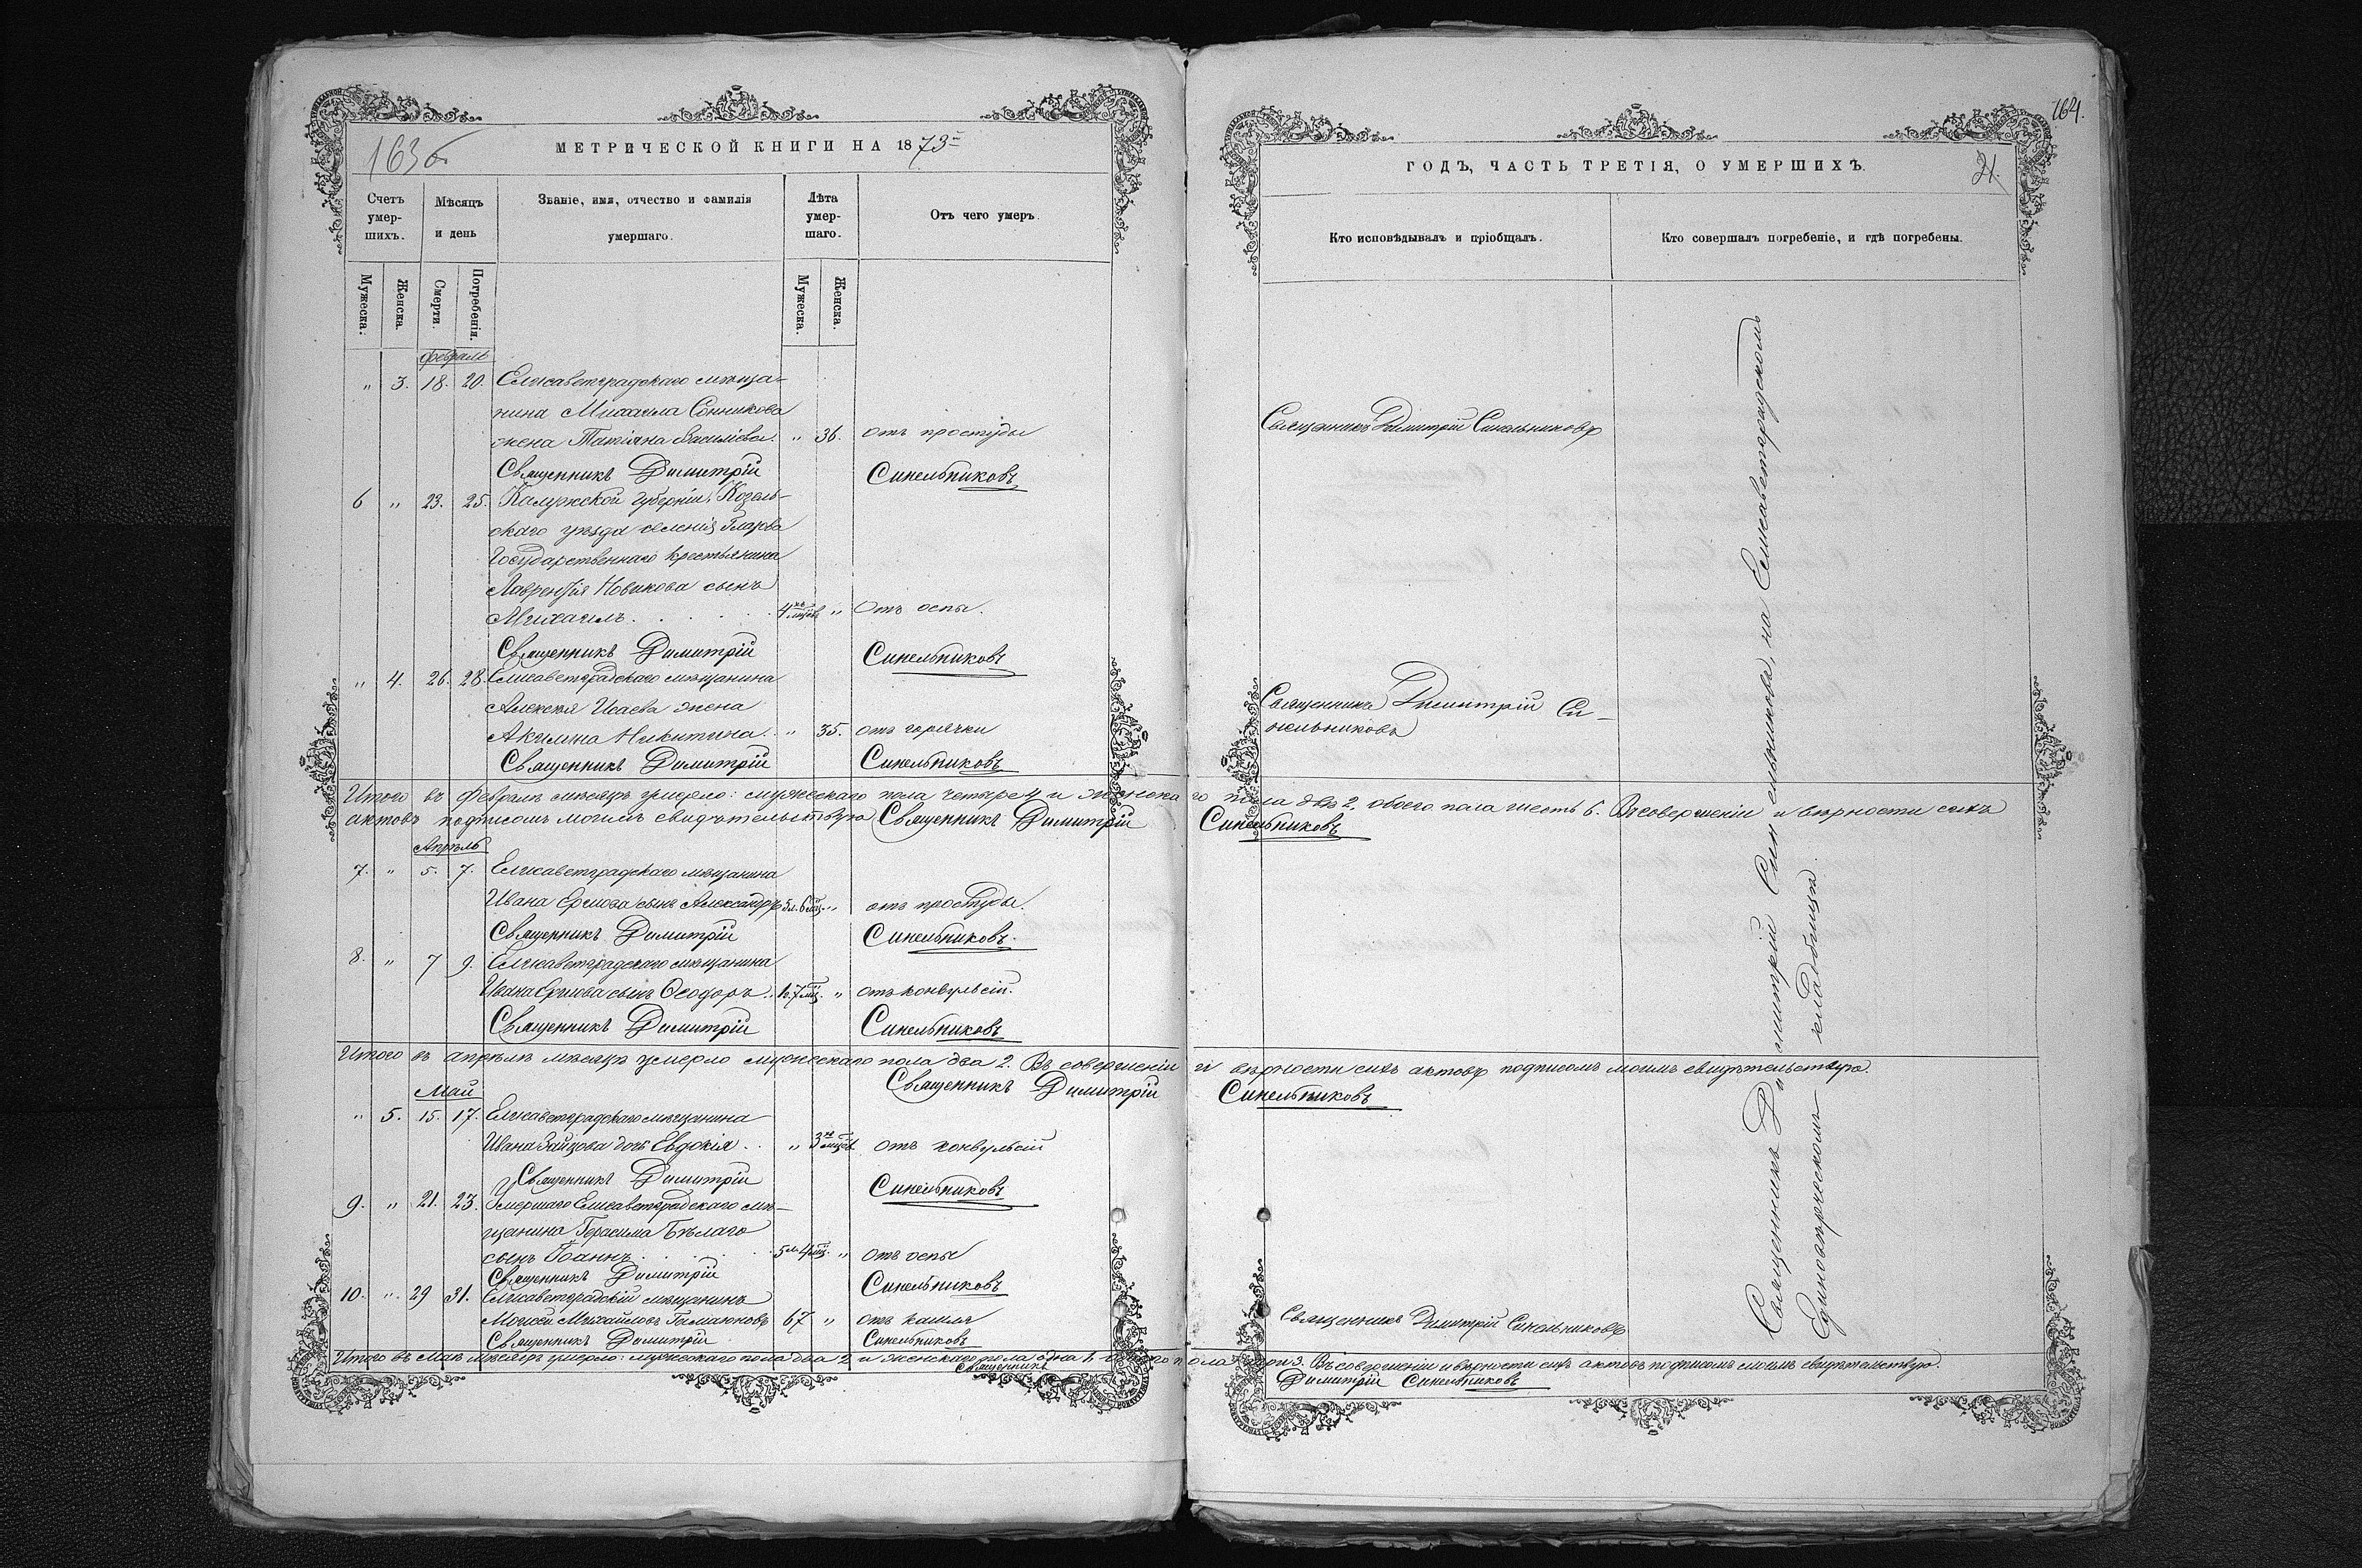 163 б
МЕТРИЧЕСКОЙ КНИГИ НА 1873
Счетъ умер-шихъ.
Мѣсяцъ и день
Званіе, имя, отчество и фамилія умершаго.
Лѣта умер-шаго.
Отъ чего умеръ.
Мужеска.
Женска.
Смерти.
Погребенія.
Мужеска.
Женска.
Февраль
" 3. 18. 20. Елисаветградскаго мѣща-
нина Михаила Сонникова
жена Татіана Васильева. " 36. отъ простуды
Священникъ Димитрій Синельниковъ
6 " 23. 25. Калужской губерніи, Козель-
скаго уѣзда селенія
Государственнаго крестьянина
Лаврентія Новикова сынъ
Михаилъ. 4хъ мцѣв " Отъ оспы.
Священникъ Димитрій Синельниковъ
" 4. 26. 28. Елисаветградскаго мѣщанина
Алексѣя Исаева жена
Акилина Никитина. " 35. отъ горячки
Священникъ Димитрій Синельниковъ
Итого въ Февралѣ мѣсяцѣ умерло: мужескаго пола четыре 4 и женска
актовъ подписомъ моимъ свидѣтельствую Священникъ Димитрій
Апрѣль
7. " 5. 7. Елисаветградскаго мѣщанина
Ивана Ершова сынъ Александръ 5л. 6 мц. " отъ простуды.
Священникъ Димитрій Синельниковъ.
8. " 7 9. Елисаветградскаго мѣщанина
Ивана Ершова сынъ Ѳеодоръ. 1г. 7 мц. " отъ конвульсій.
Священникъ Димитрій Синельниковъ
Итого въ апрѣлѣ мѣсяцѣ умерло мужескаго пола два 2. Въ совершеніи
Священникъ Димитрій
Май
" 5. 15. 17. Елисаветградскаго мѣщанина
Ивана Зайцова дочь Евдокія. " 3хъ мцѣв отъ конвульсій
Священникъ Димитрій Синельниковъ
9. " 21. 23. Умершаго Елисаветградскаго мѣ-
щанина Герасима Бѣлаго
сынъ Іоаннъ. 5 л. 4 мц. " отъ оспы
Священникъ Димитрій Синельниковъ
10. " 29 31. Елисаветградскій мѣщанинъ
Моисей Михайловъ 67 " отъ кашля
Священникъ Димитрій Синельниковъ
Итого въ Маѣ мѣсяцѣ умерло: мужескаго пола два 2 и женскаго пола одна 1,
Священникъ
164.
ГОДЪ, ЧАСТЬ ТРЕТІЯ, О УМЕРШИХЪ.
21.
Кто исповѣдывалъ и пріобщалъ.
Кто совершалъ погребеніе, и гдѣ погребены.
Священникъ Димитрій Синельниковъ
Священникъ Димитрій Си-
нельниковъ
го пола двѣ 2, обоего пола шесть 6. Въ совершеніи и вѣрности сихъ
Синельниковъ
и вѣрности сихъ актовъ подписомъ моимъ свидѣтельствую.
Синельниковъ
Священникъ Димитрій Синельниковъ
пола три 3. Въ совершеніи и вѣрности сихъ актовъ подписомъ моимъ свидѣтельствую.
Димитрій Синельниковъ
Священникъ Димитрій Синельниковъ, на Елисаветградскомъ
Единовѣрческомъ кладбищѣ.